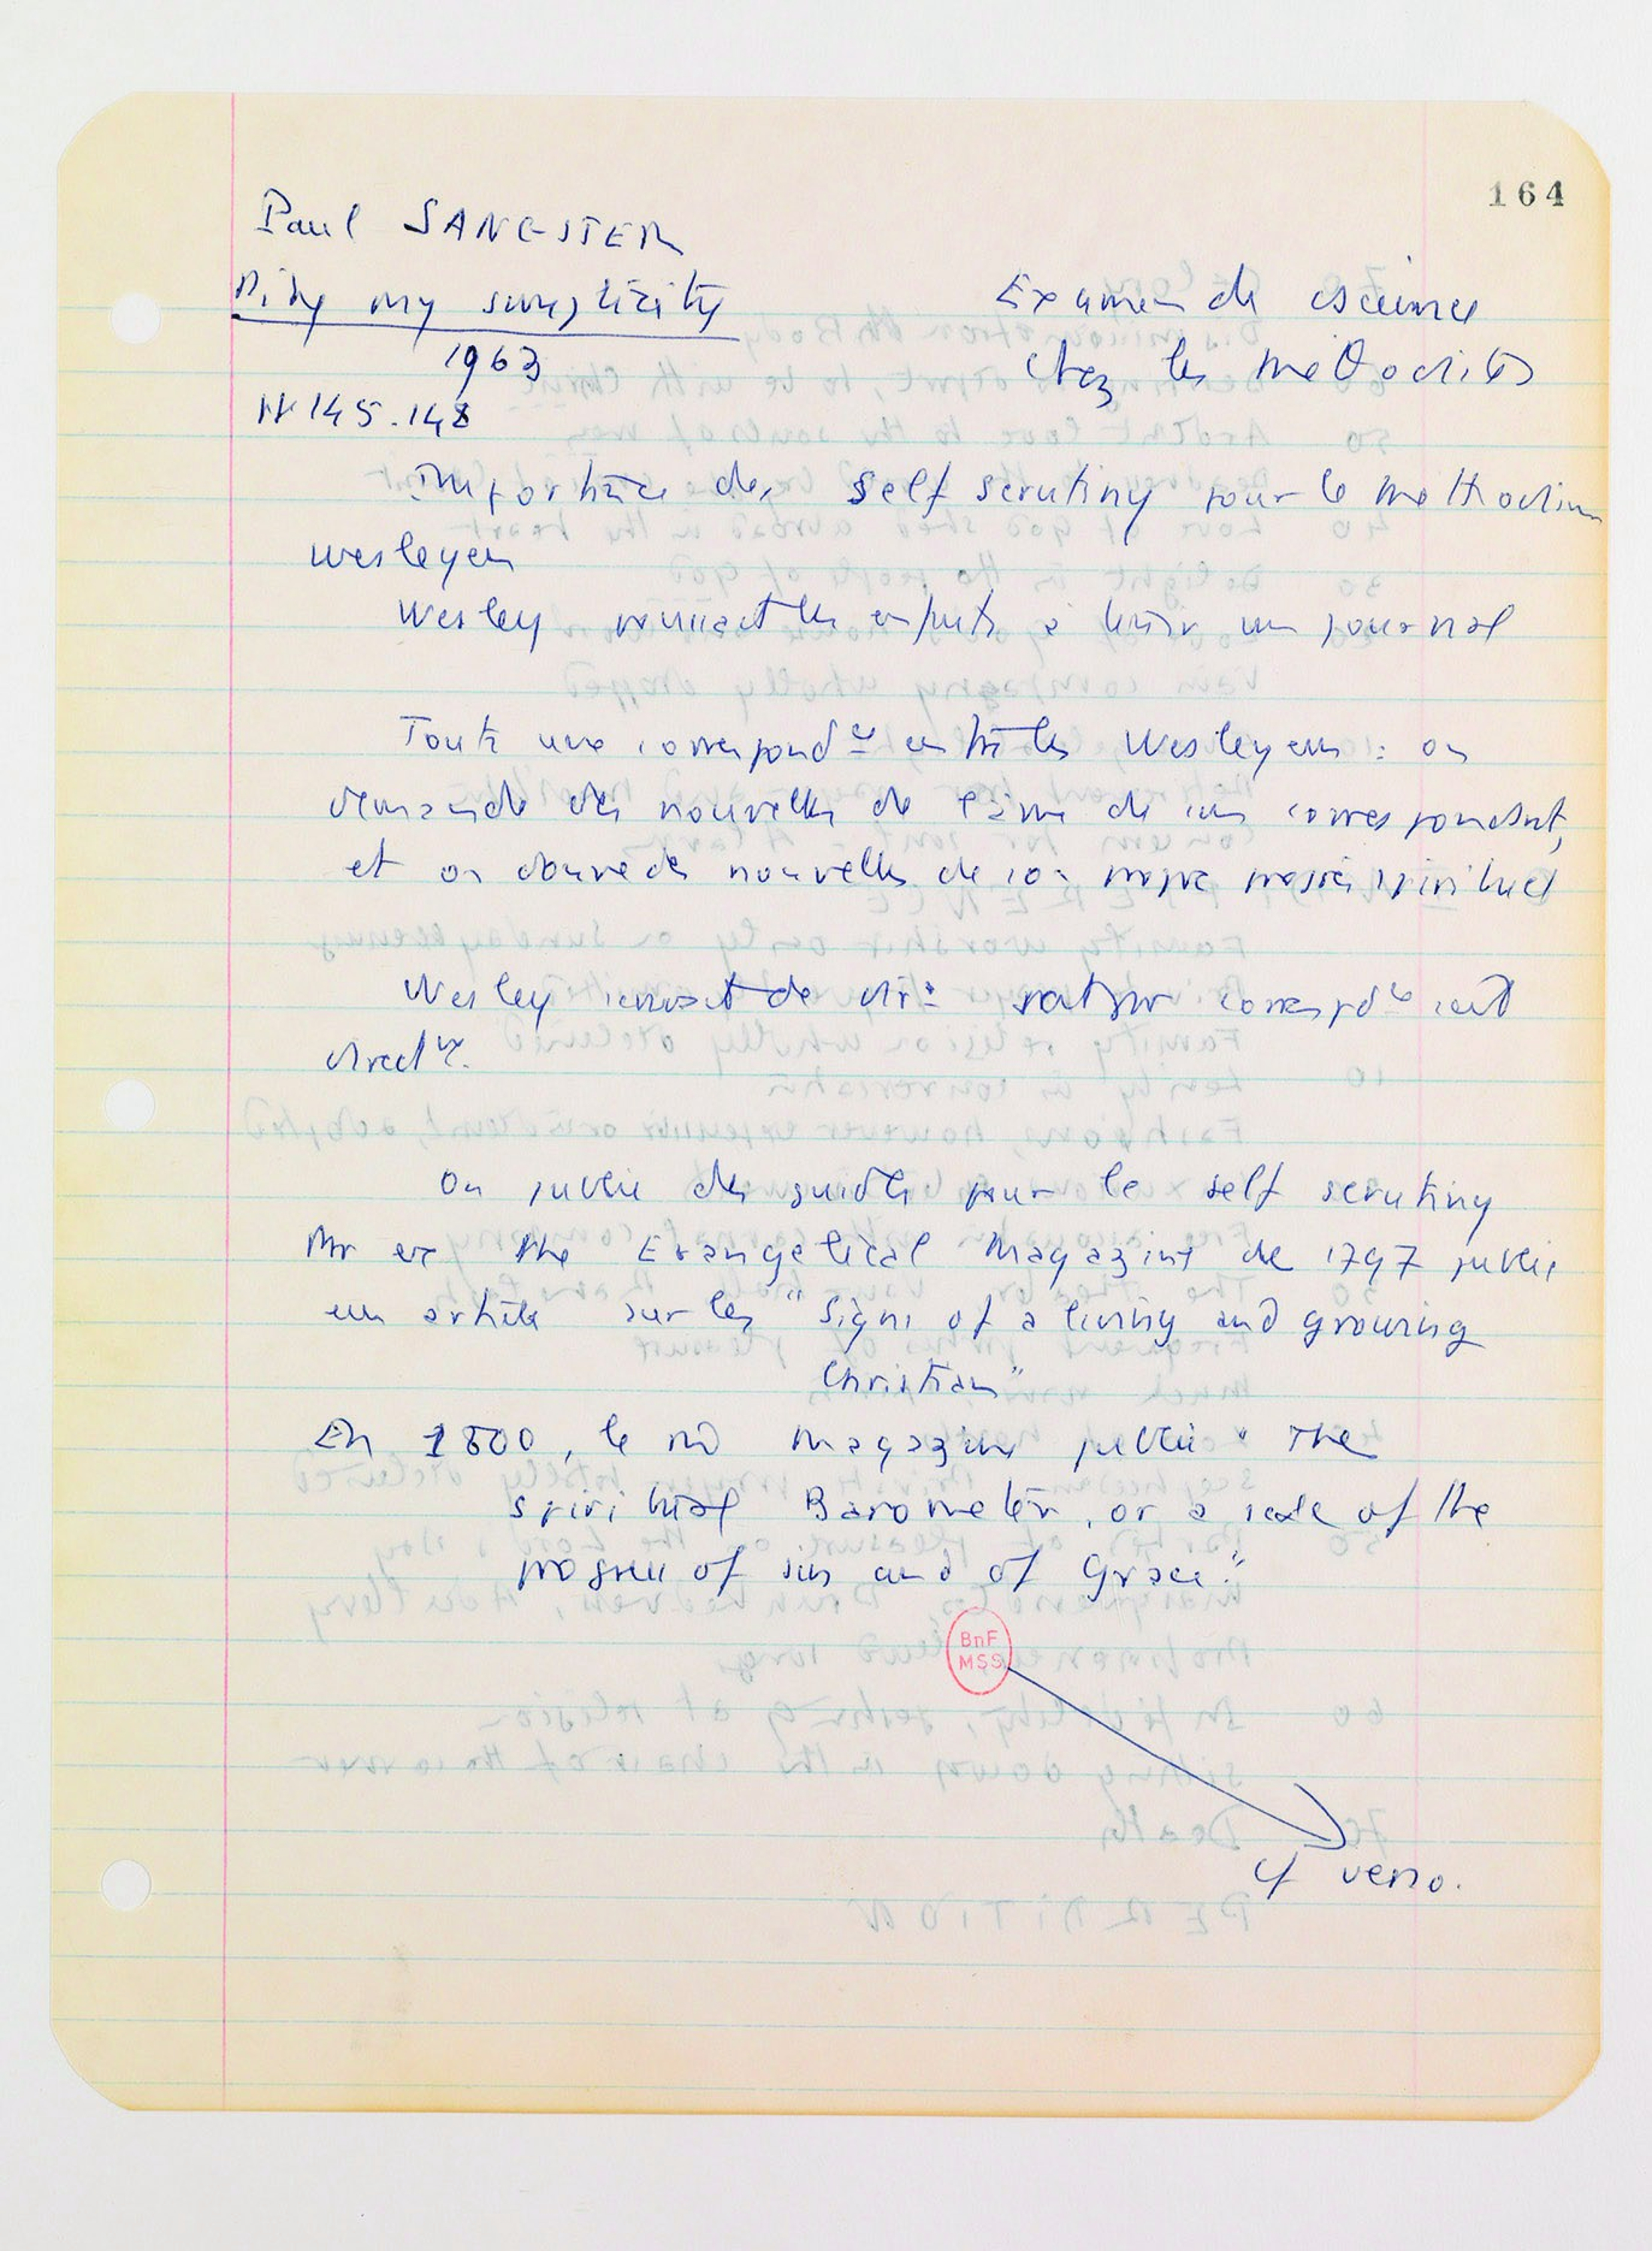 164
Paul SANGSTER
Pity my simplicity
1963
pp 145.148
Examen de cscience
chez les méthodistes
Importance des self scrutiny pour le methodism
wesleyen
Wesley les enfts à tenir un journal
Toute une correspondce entre les Wesleyens : on
demande des nouvelles de l'âme de son correspondant,
et on donne des nouvelles de son propre progrès spirituel
Wesley de
directr.
On publie des guides pour le self scrutiny
Par ex the Evangelical Magazine de 1797 publie
un article sur les "Signs of a living and growing
Christian"
En 1800, le md magazine publie "The
spiritual Barometer, or a scale of the
progress of sin and of Grace."
BnF
MSS
cf verso.